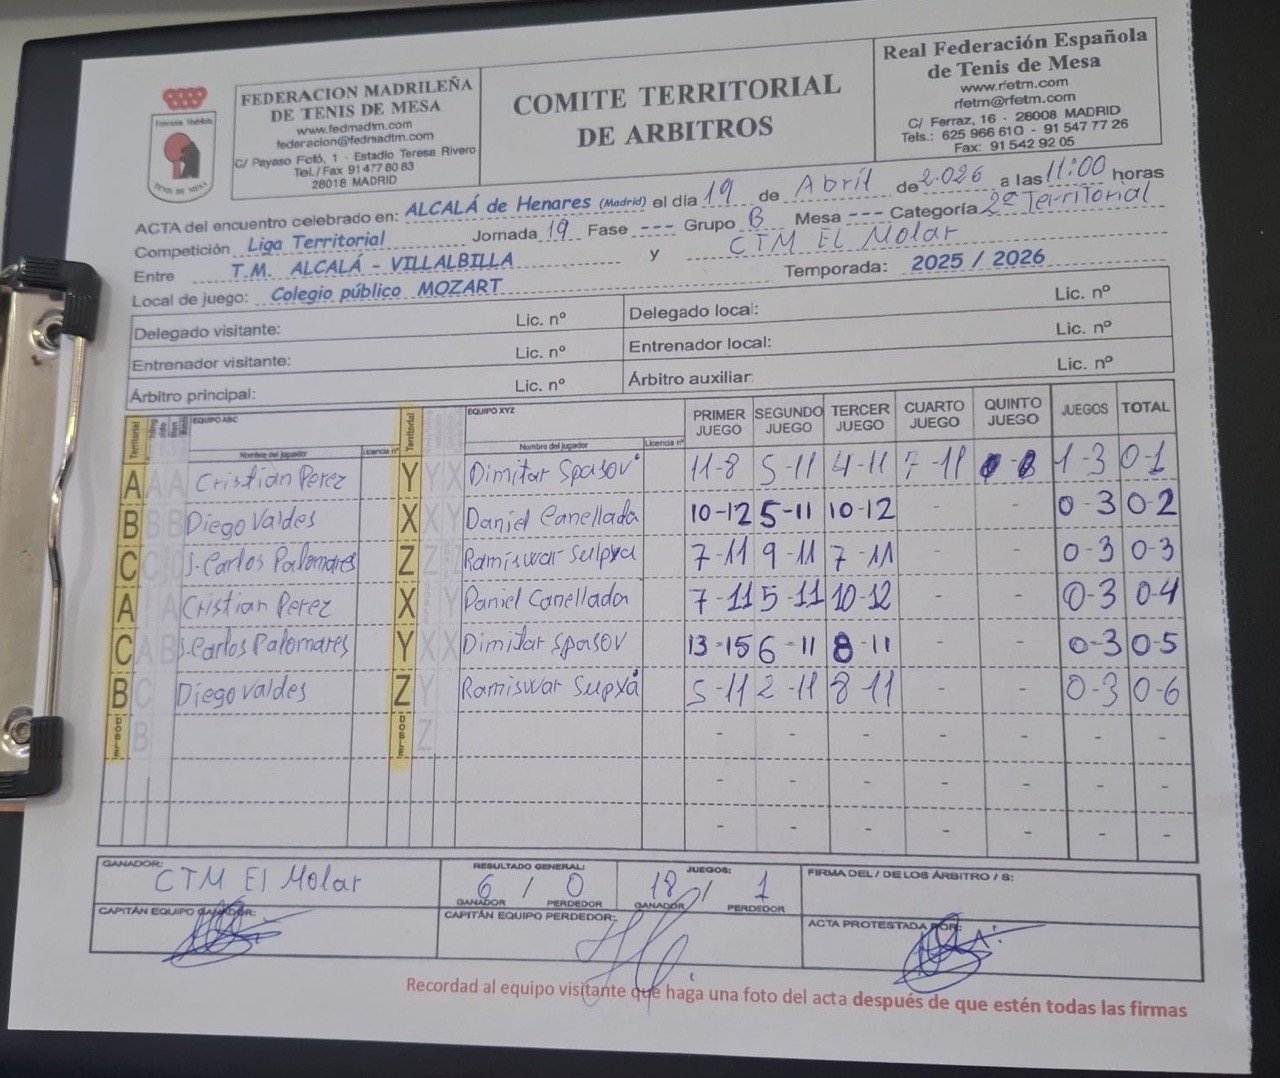 FEDERACION MADRILEÑA
DE TENIS DE MESA
www.fedmadtm.com
federacion@fedmadtm.com
C/ Payaso Fofó, 1 - Estadio Teresa Rivero
Tel./Fax 91 477 80 83
28018 MADRID
COMITE TERRITORIAL
DE ARBITROS
Real Federación Española
de Tenis de Mesa
www.rfetm.com
rfetm@rfetm.com
C/ Ferraz, 16 - 28008 MADRID
Tels.: 625 966 610 - 91 547 77 26
Fax: 91 542 92 05
TENIS DE MESA
ACTA del encuentro celebrado en: ALCALÁ de Henares (Madrid) el día 19 de Abril de 2.026 a las 11:00 horas
Competición Liga Territorial Jornada 19 Fase --- Grupo B Mesa --- Categoría 2ª Territorial
Entre T.M. ALCALÁ - VILLALBILLA y CTM El Molar
Local de juego: Colegio público MOZART Temporada: 2025 / 2026
Delegado visitante: Lic. nº Delegado local: Lic. nº
Entrenador visitante: Lic. nº Entrenador local: Lic. nº
Árbitro principal: Lic. nº Árbitro auxiliar: Lic. nº
Territorial EQUIPO ABC Nombre del jugador Licencia nº Territorial EQUIPO XYZ Nombre del jugador Licencia nº PRIMER JUEGO SEGUNDO JUEGO TERCER JUEGO CUARTO JUEGO QUINTO JUEGO JUEGOS TOTAL
A A A Cristian Perez Y Y X Dimitar Spasov 11-8 5-11 4-11 7-11 1-3 0-1
B B B Diego Valdes X X Y Daniel Canellada 10-12 5-11 10-12 - - 0-3 0-2
C C C J. Carlos Palomares Z Z Ramiswar 7-11 9-11 7-11 - - 0-3 0-3
A A Cristian Perez X Y Daniel Canellada 7-11 5-11 10-12 - - 0-3 0-4
C A B J. Carlos Palomares Y X X Dimitar Spasov 13-15 6-11 8-11 - - 0-3 0-5
B C Diego Valdes Z Y Ramiswar 5-11 2-11 8-11 - - 0-3 0-6
DOBLE B DOBLE Z - - - - - - -
- - - - - - -
- - - - - - -
GANADOR: CTM El Molar
RESULTADO GENERAL: 6 / 0
GANADOR PERDEDOR
JUEGOS: 18 / 1
GANADOR PERDEDOR
FIRMA DEL / DE LOS ÁRBITRO / S:
CAPITÁN EQUIPO GANADOR: CAPITÁN EQUIPO PERDEDOR: ACTA PROTESTADA POR:
Recordad al equipo visitante que haga una foto del acta después de que estén todas las firmas